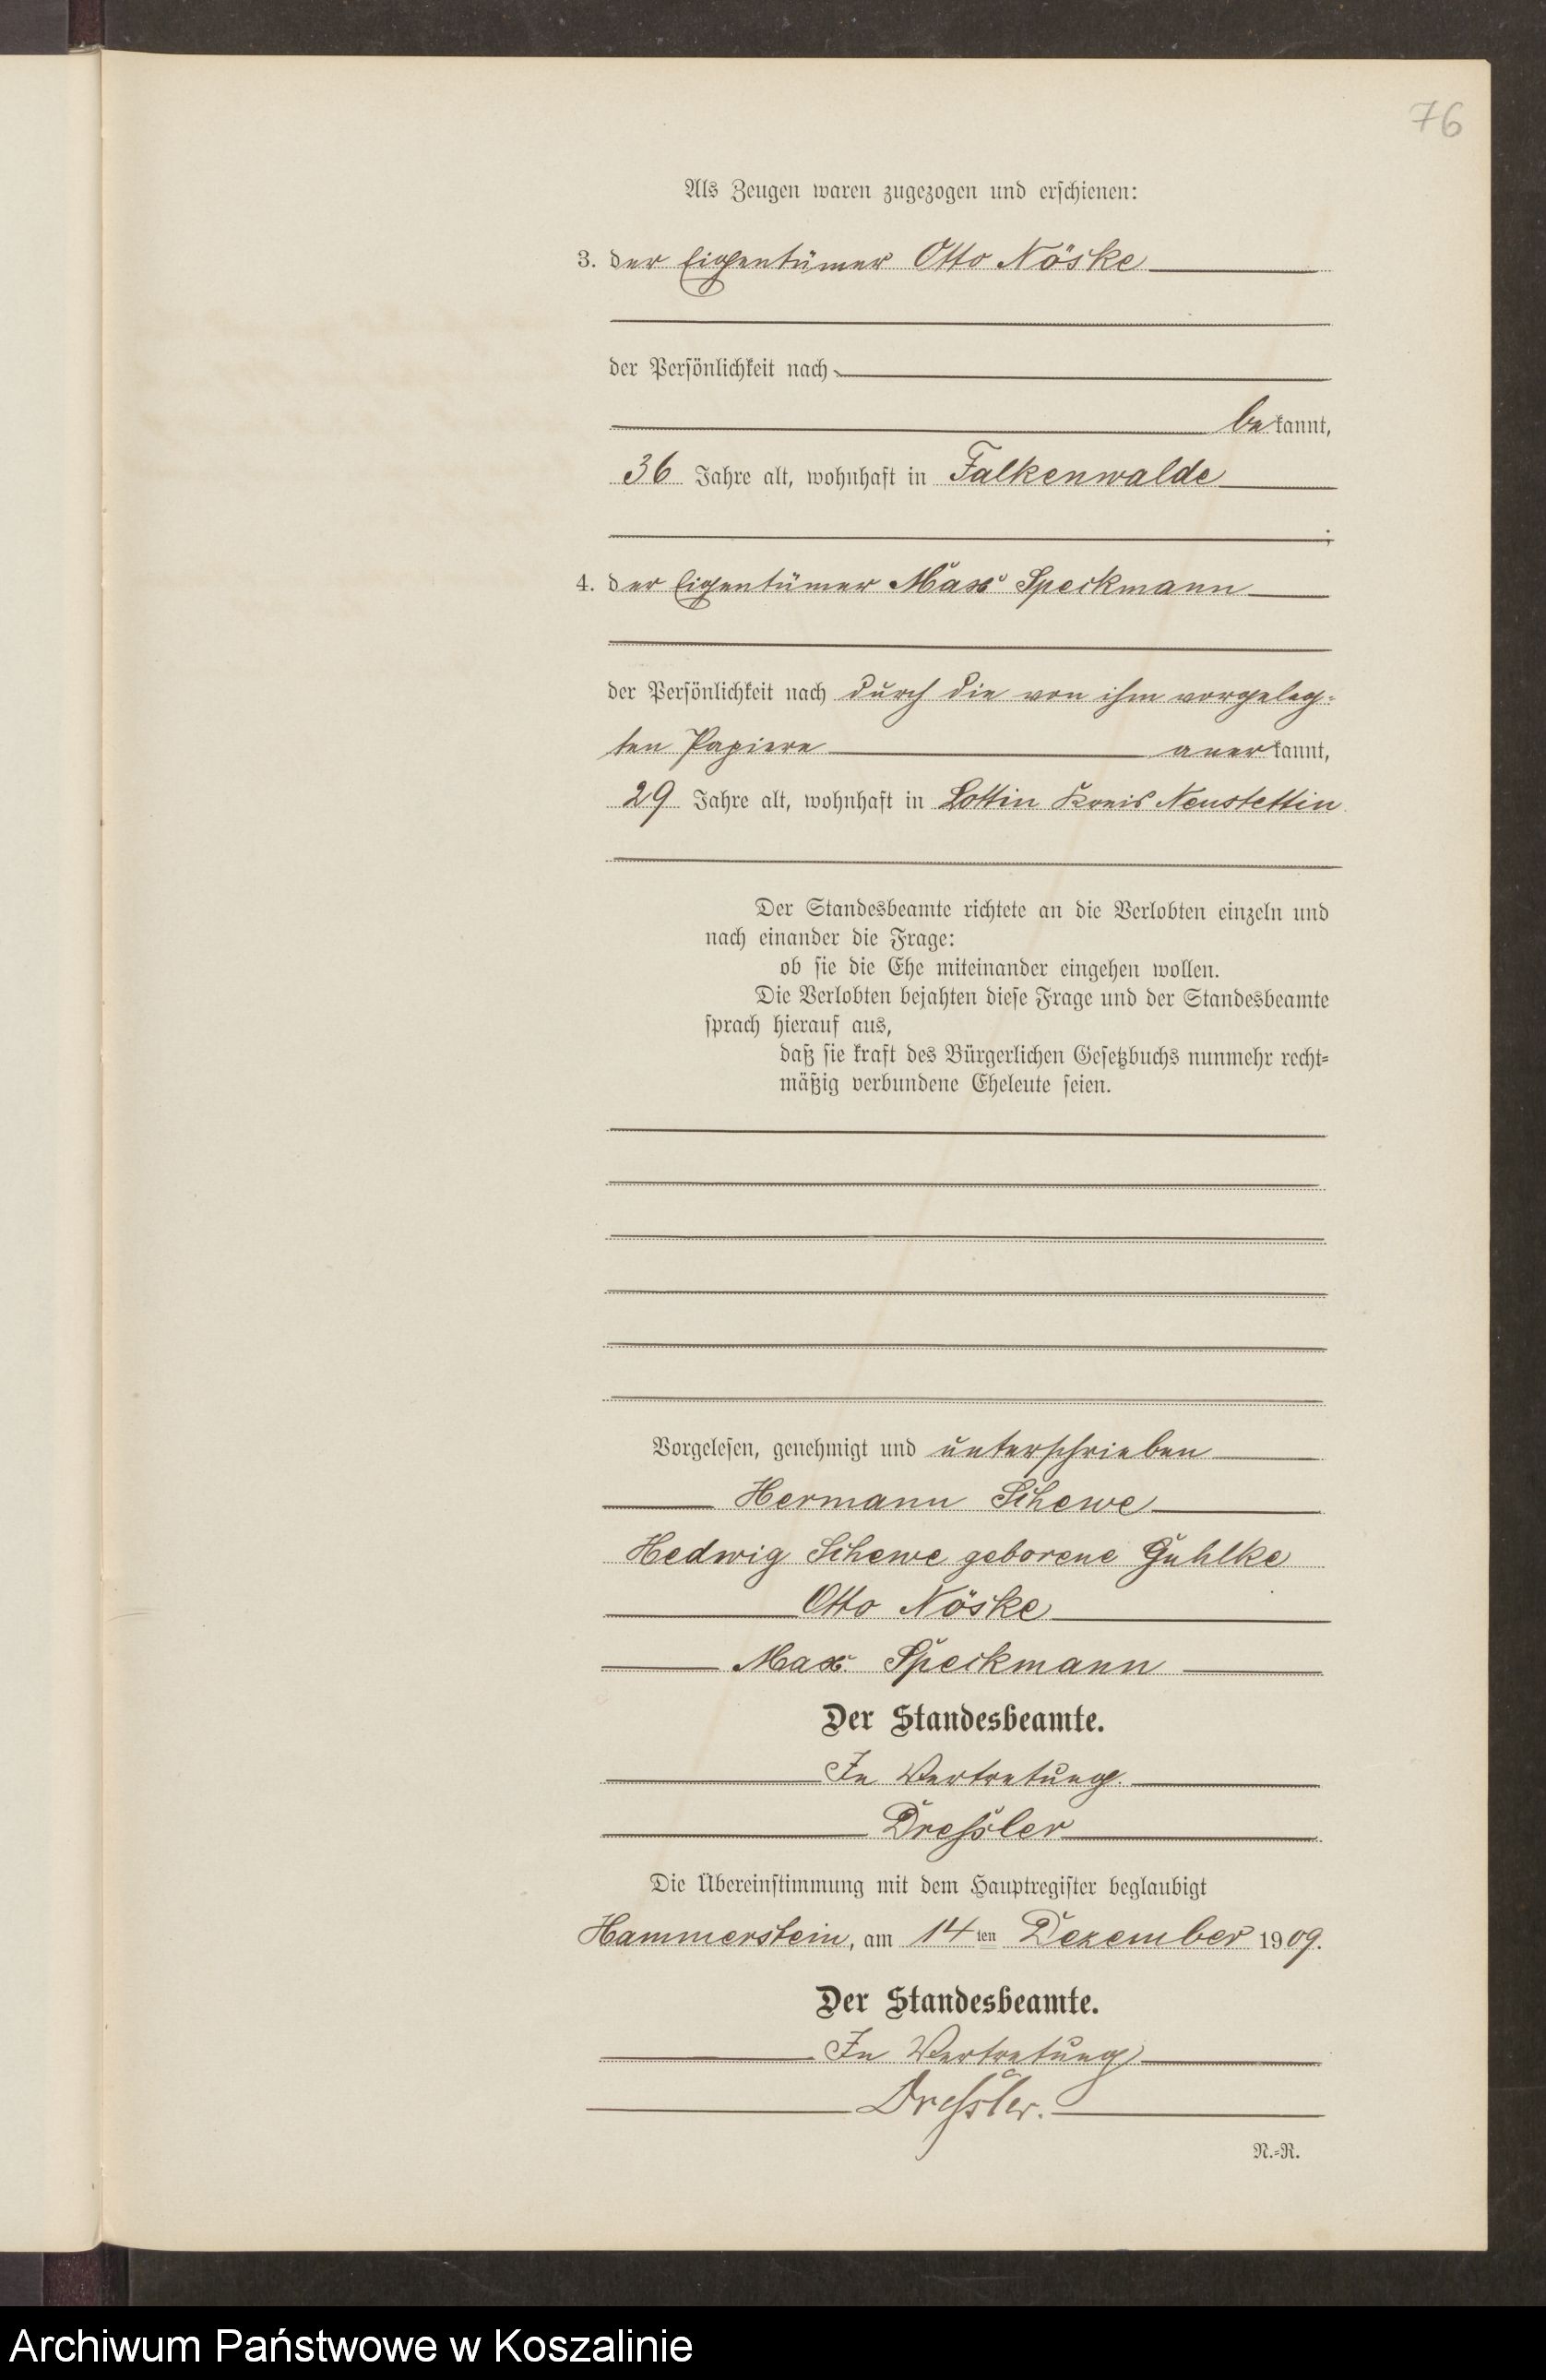 76
Als Zeugen waren zugezogen und erschienen:
3. der Eigentümer Otto Nöske
der Persönlichkeit nach
bekannt,
36 Jahre alt, wohnhaft in Falkenwalde
;
4. der Eigentümer Max Speckmann
der Persönlichkeit nach durch die von ihm vorgeleg-
ten Papiere anerkannt,
29 Jahre alt, wohnhaft in Lottin Kreis Neustettin
Der Standesbeamte richtete an die Verlobten einzeln und
nach einander die Frage:
ob sie die Ehe miteinander eingehen wollen.
Die Verlobten bejahten diese Frage und der Standesbeamte
sprach hierauf aus,
daß sie kraft des Bürgerlichen Gesetzbuchs nunmehr recht-
mäßig verbundene Eheleute seien.
Vorgelesen, genehmigt und unterschrieben
Hermann Schewe
Hedwig Schewe geborene Guhlke
Otto Nöske
Max Speckmann
Der Standesbeamte.
In Vertretung.
Dressler
Die Übereinstimmung mit dem Hauptregister beglaubigt
Hammerstein, am 14ten Dezember 1909.
Der Standesbeamte.
In Vertretung
Dressler.
N.-R.
Archiwum Państwowe w Koszalinie